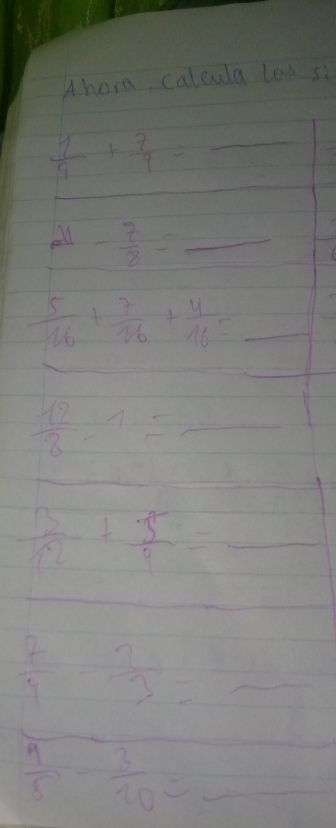 Ahora, calcula las si
1/9 + 7/9 = ____
4 - 7/8 = ____
5/16 + 7/16 + 4/16 = ____
12/8 - 1 = ____
3/12 + 5/9 = ____
7/9 - 1/3 = ____
9/5 - 3/10 = ____